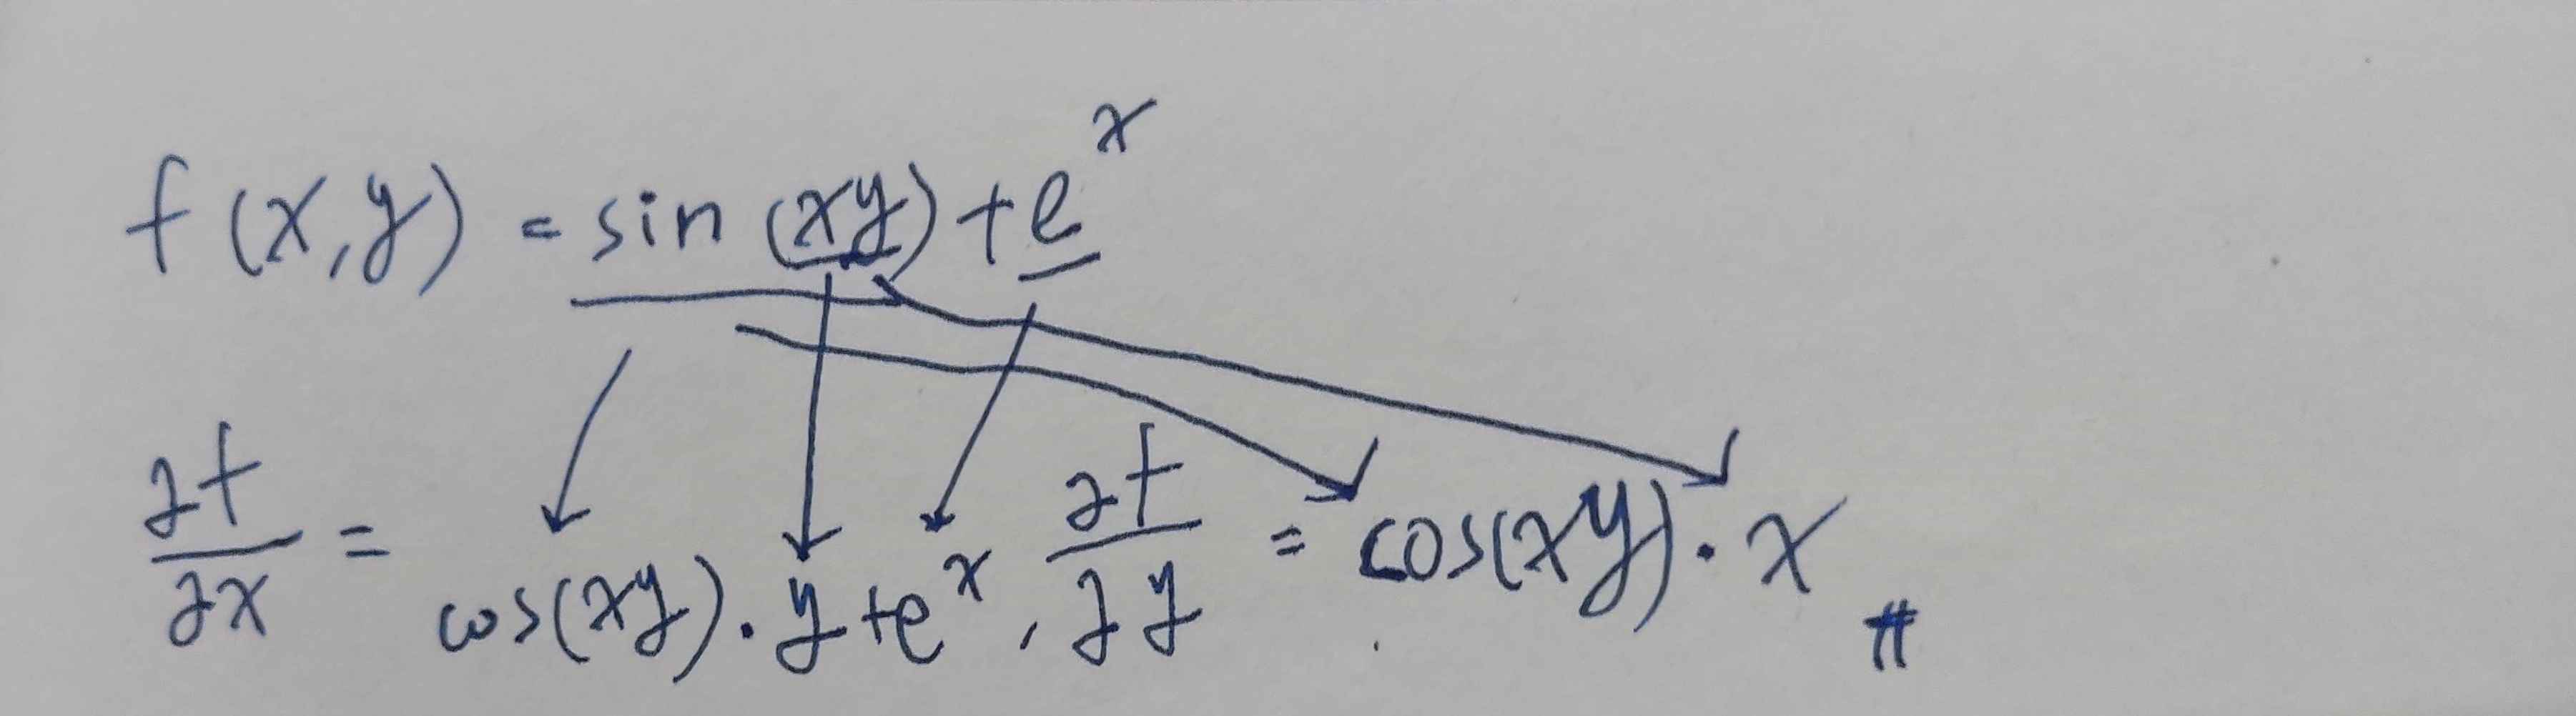 f(x,y) = sin(xy) + e^x
∂f/∂x = cos(xy)·y + e^x, ∂f/∂y = cos(xy)·x #